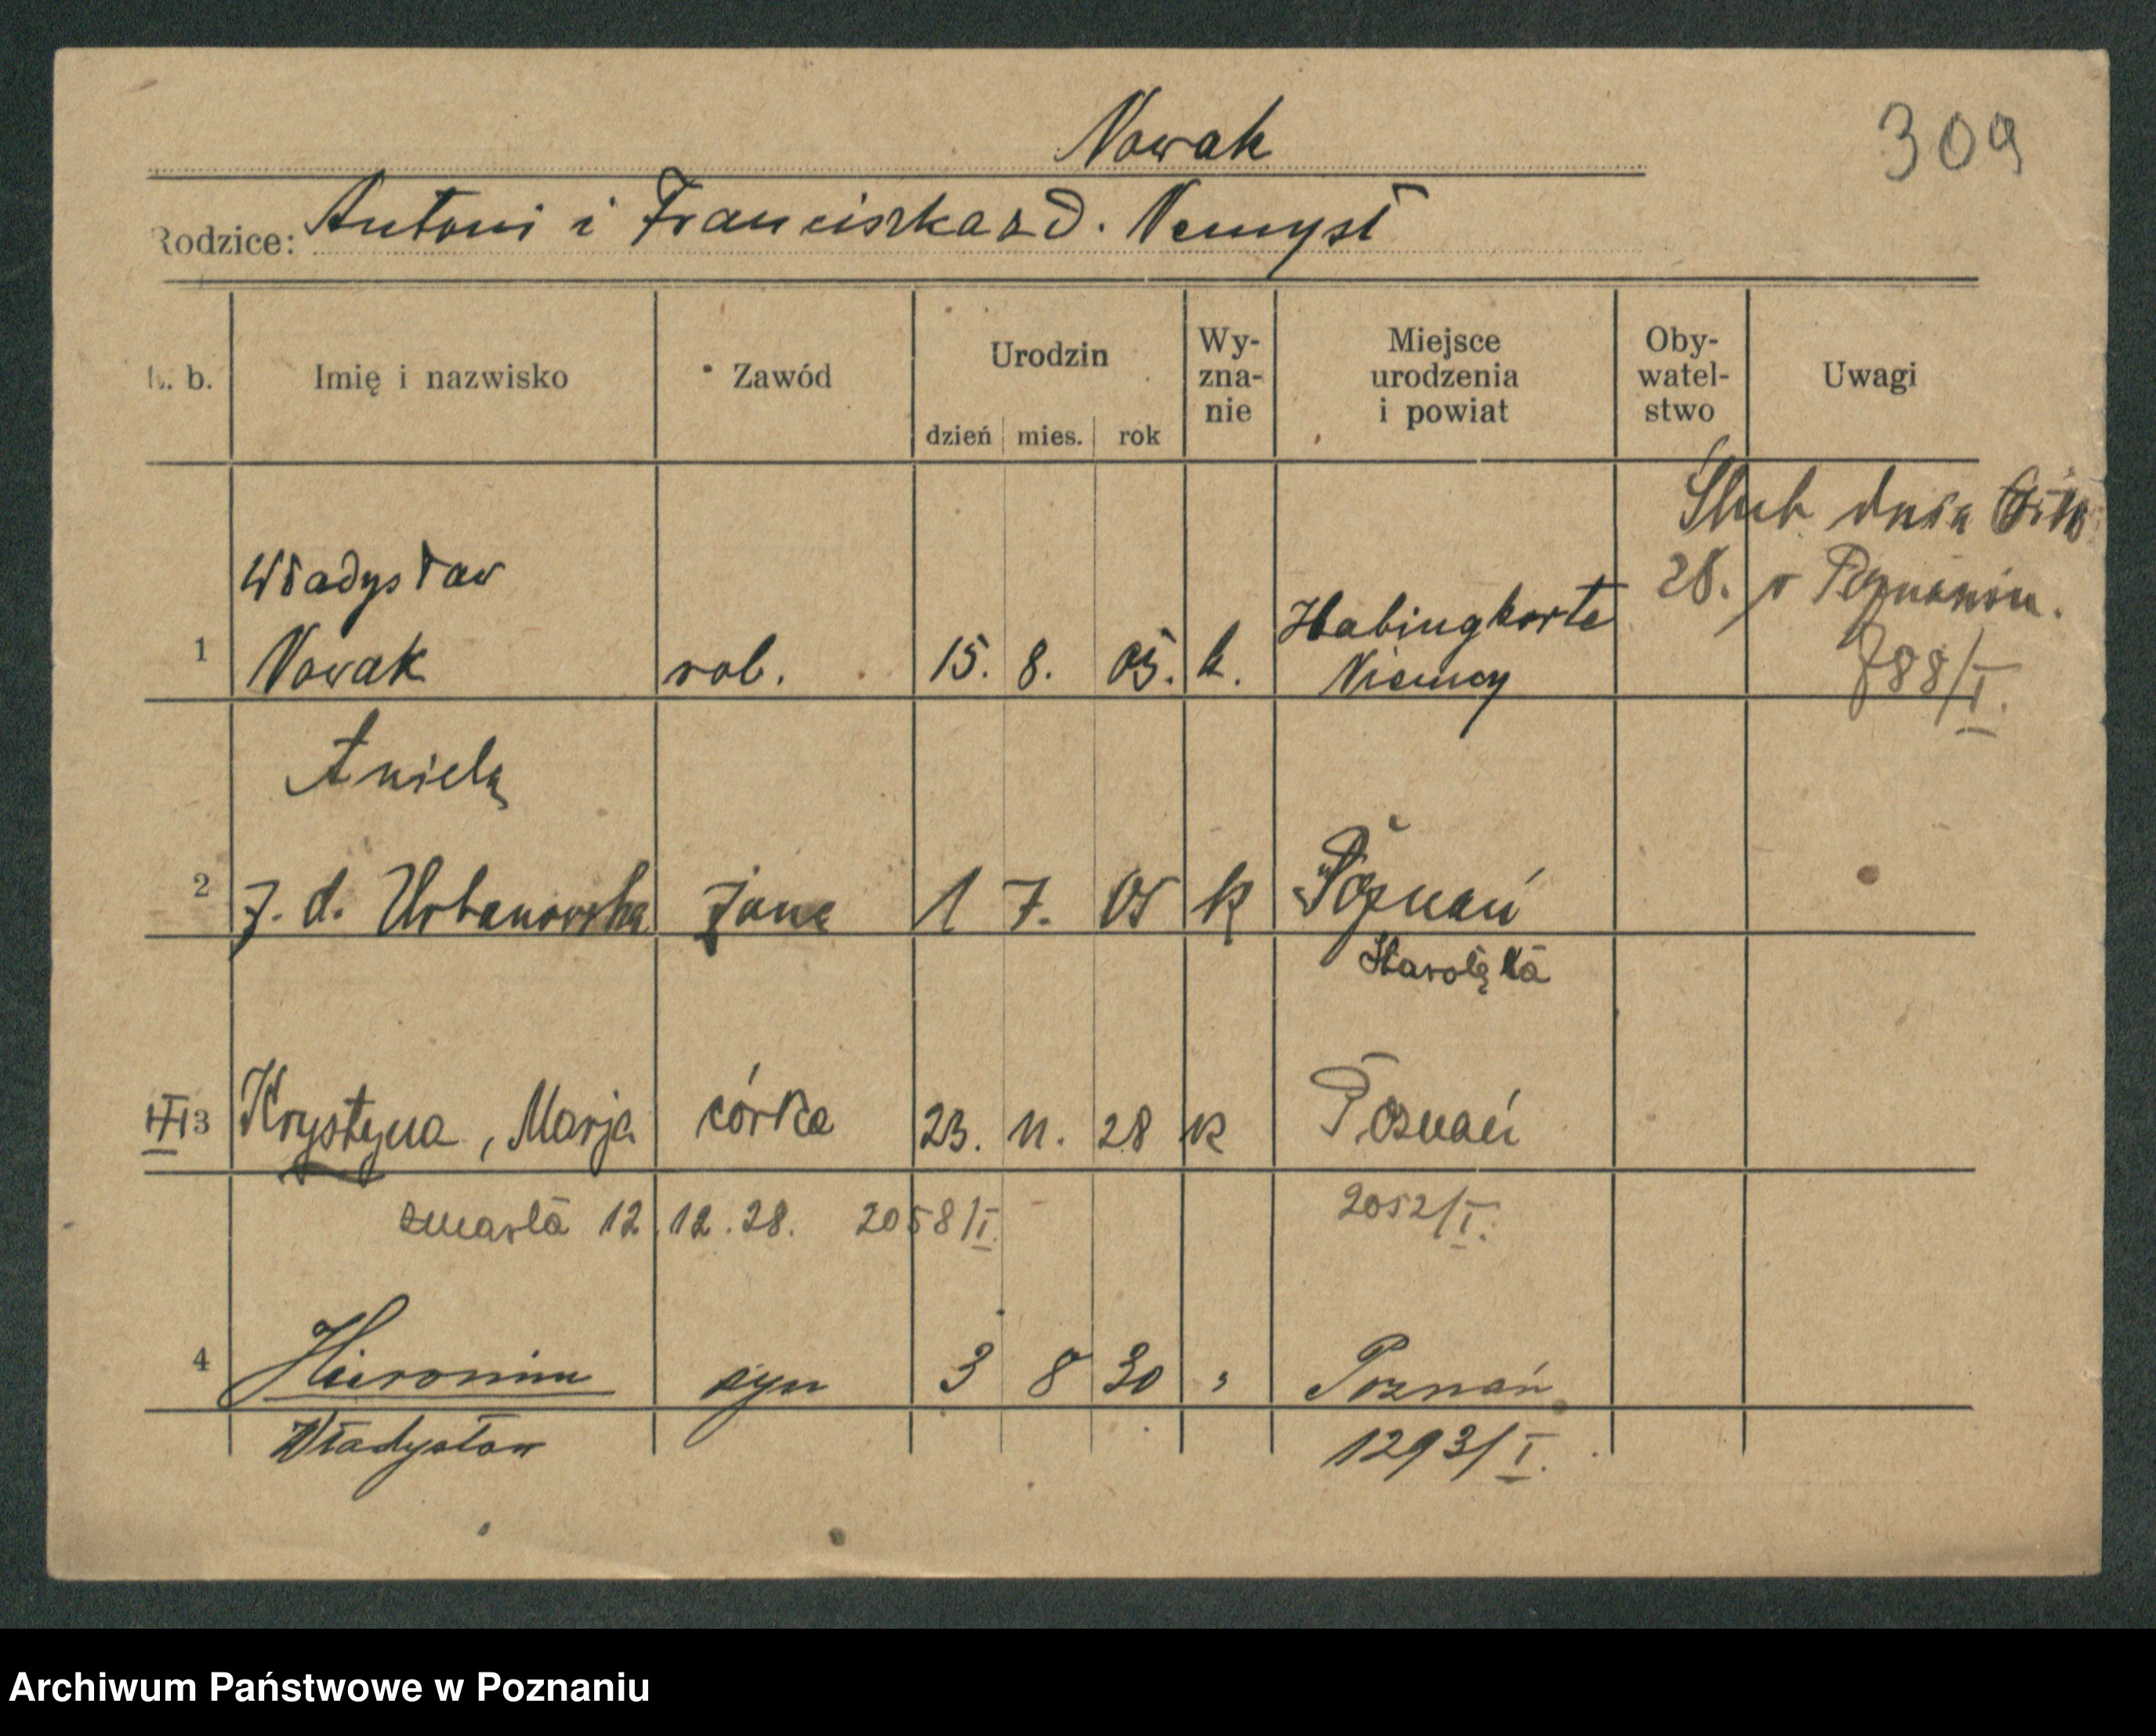 Nowak
309
Rodzice: Antoni i Franciszka z d. Nemyst
L. b.
Imię i nazwisko
Zawód
Urodzin
dzień mies. rok
Wy-
zna-
nie
Miejsce
urodzenia
i powiat
Oby-
watel-
stwo
Uwagi
Ślub dnia
28. w Poznaniu.
788/I.
Władysław
1 Nowak rob. 15. 8. 05. k. Habinghorte
Niemcy
Aniela
2 z. d. Urbanowska żona 1 7. 05 k Poznań
Starołęka
3 Krystyna, Marja córka 23. 11. 28 k Poznań
zmarła 12.12.28. 2058/I. 2052/I.
4 Hieronim syn 3 8 30 " Poznań
Władysław 1293/I.
Archiwum Państwowe w Poznaniu